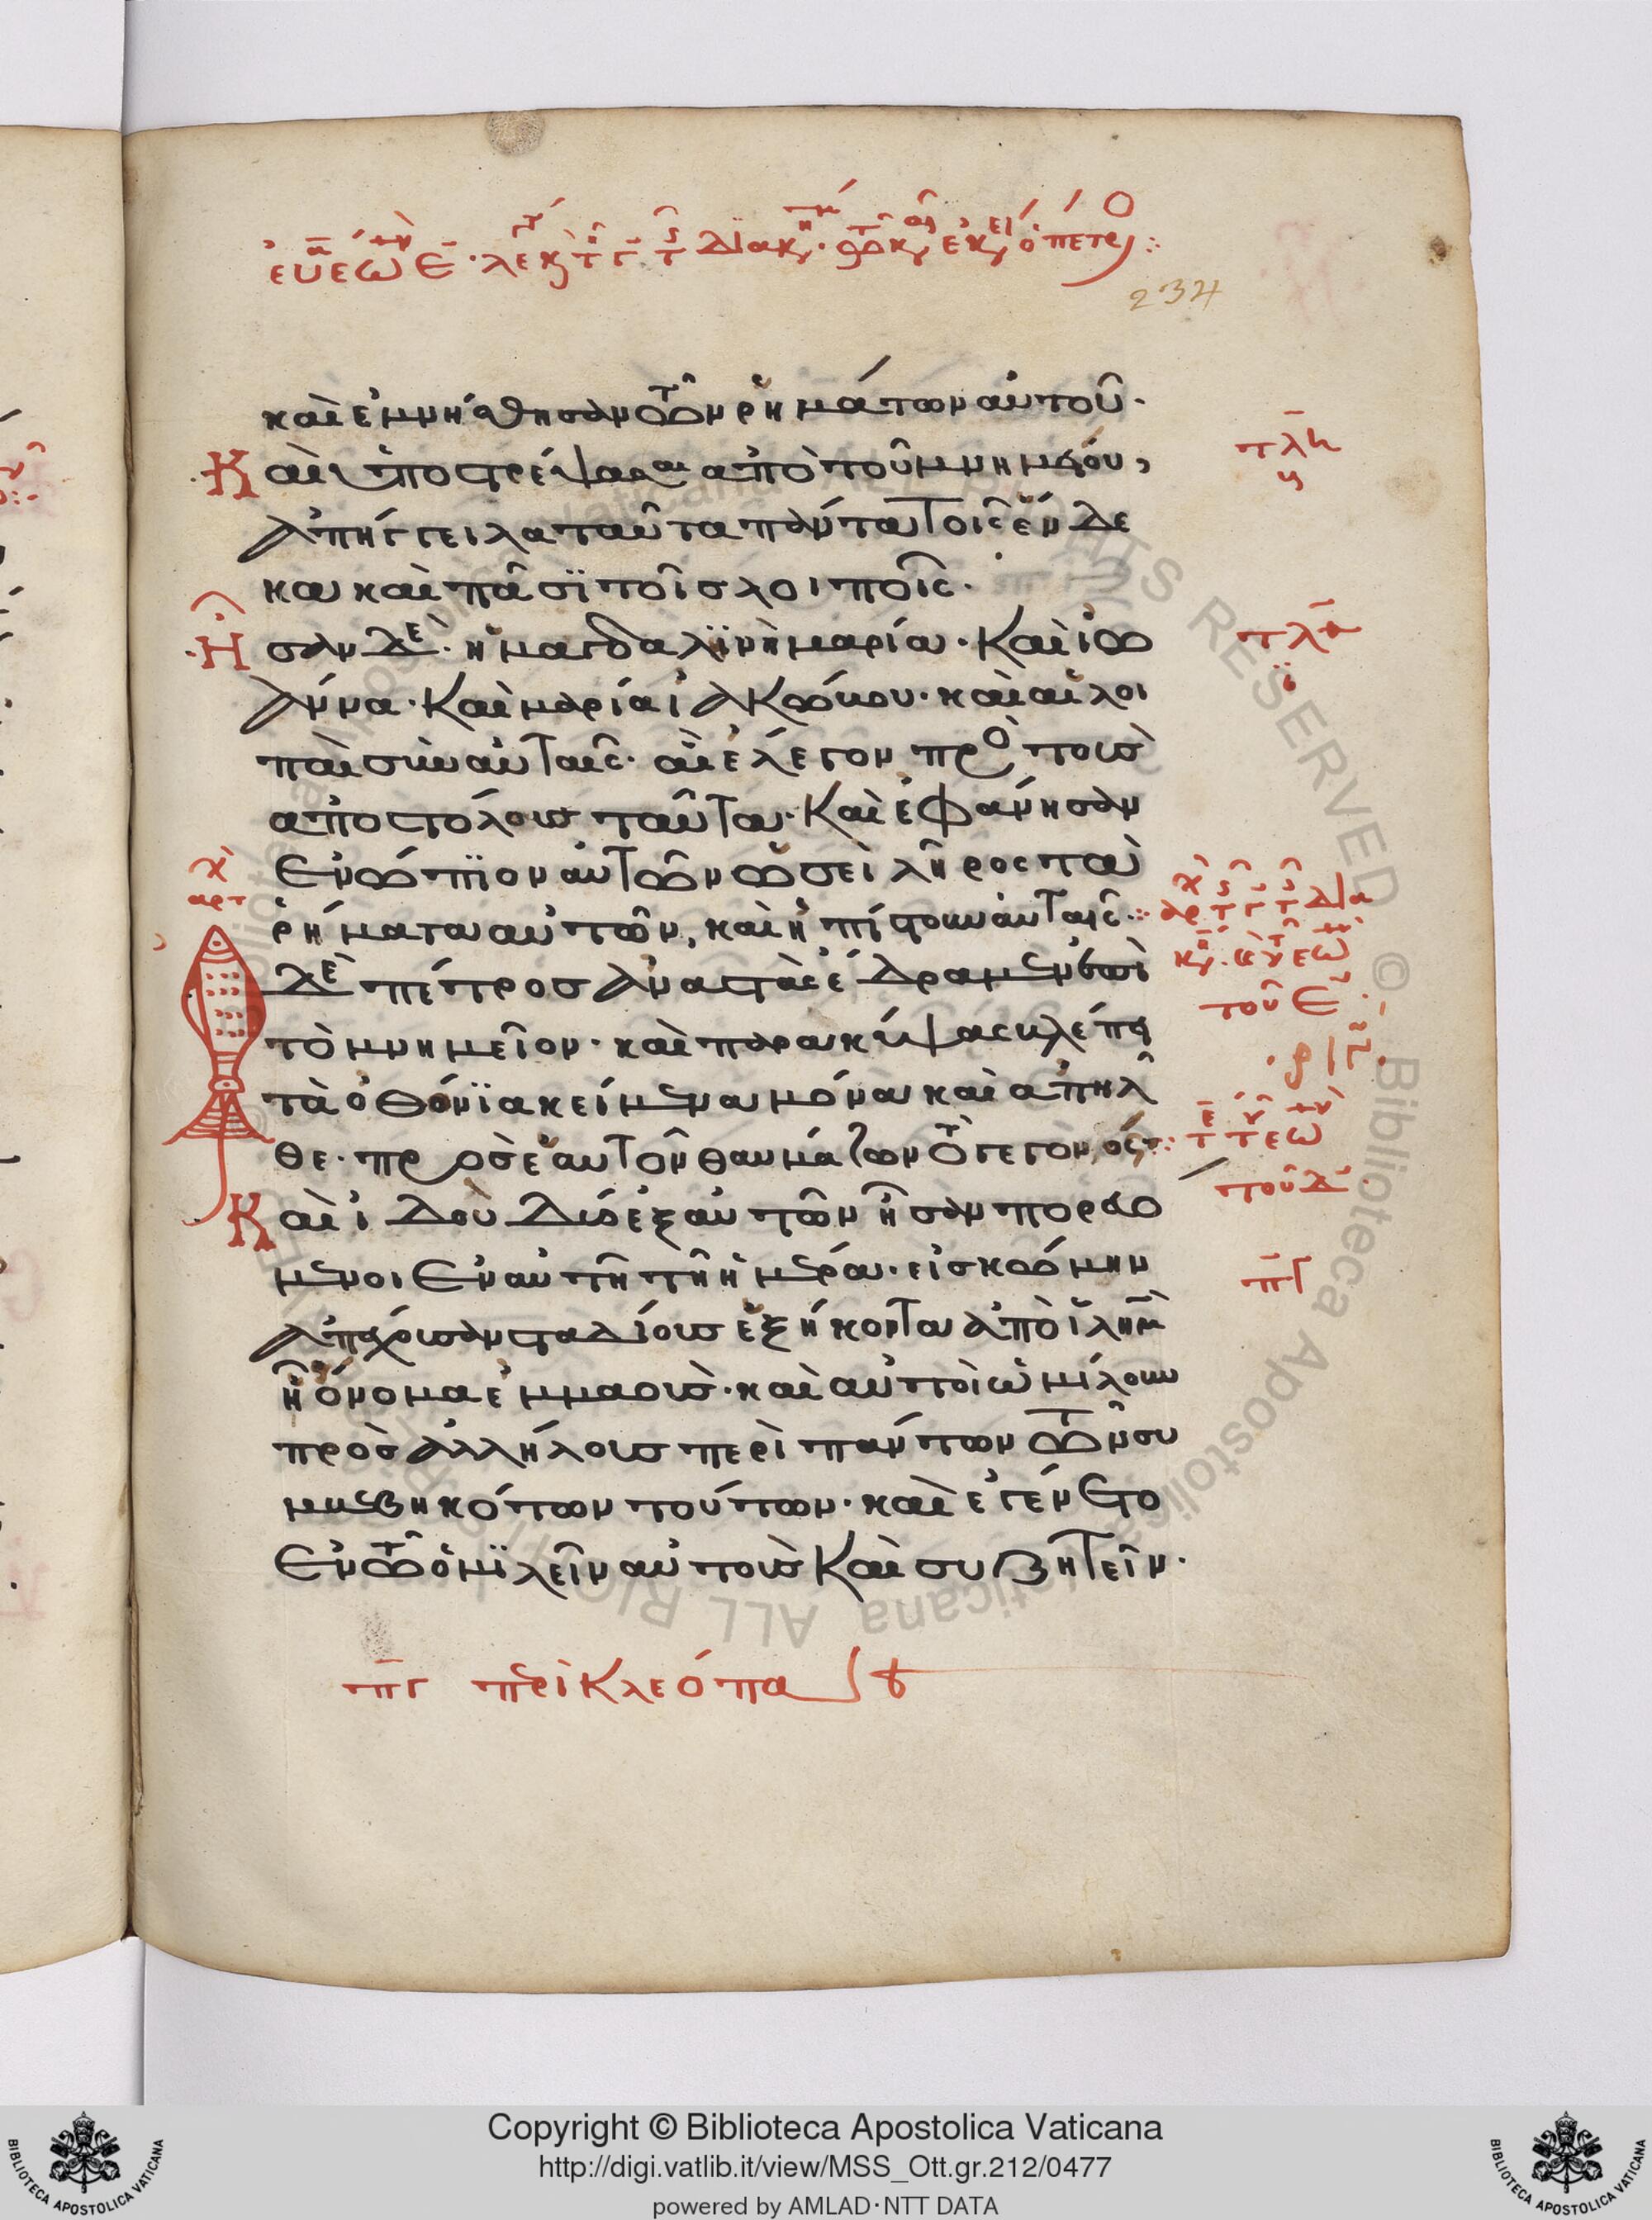 234
καὶ ἐμνήσθησαν τῶν ῥημάτων αὐτοῦ·
Καὶ ὑποστρέψασαι ἀπὸ τοῦ μνημείου,
ἀπήγγειλα ταῦτα πάντα τοῖς ἕνδε
κα καὶ πᾶσϊ τοῖσ λοιποῖς·
Ησαν δὲ· ἡ μαγδαλϊνὴ μαρία· Καὶ ἰω
άννα· Καὶ μαρία ἰακώβου· καὶ αἱ λοι
παὶ σὺν αὐταῖς· αἳ ἔλεγον πρὸ τοὺσ
ἀποστόλουσ ταῦτα· Καὶ ἐφάνησαν
ἐνώπϊον αὐτῶν ὡσεὶ λῆρος τὰ
ῥήματα αὐτῶν, καὶ ἠπίστουν αὐταῖς··:
Ὁ δὲ πέτροσ ἀναστὰς ἔδραμεν ἐπὶ
τὸ μνημεῖον· καὶ παρακύψας βλέπει
τὰ ὀθόνϊα κείμενα μόνα καὶ ἀπῆλ
θε· πρὸσ ἑαυτὸν θαυμάζων τὸ γεγονός·:
Καὶ ἰδοὺ δύο ἐξ αὐτῶν ἦσαν πορευό
μενοι ἐν αὐτῆ τῆ ἡμέρα· εἰσ κώμην
ἀπέχουσαν σταδίουσ ἑξήκοντα ἀπὸ ϊλημ
ἧ ὄνομα ἐμμαοὺσ· καὶ αὐτοὶ ὡμίλουν
πρὸσ ἀλλήλουσ περὶ πάντων τῶν συ
μβεβηκότων τούτων· καὶ ἐγένετο
ἐν τῶ ὁμϊλεῖν αὐτοὺσ Καὶ συζητεῖν·
πγ περὶ Κλεόπα
Copyright © Biblioteca Apostolica Vaticana
http://digi.vatlib.it/view/MSS_Ott.gr.212/0477
powered by AMLAD·NTT DATA